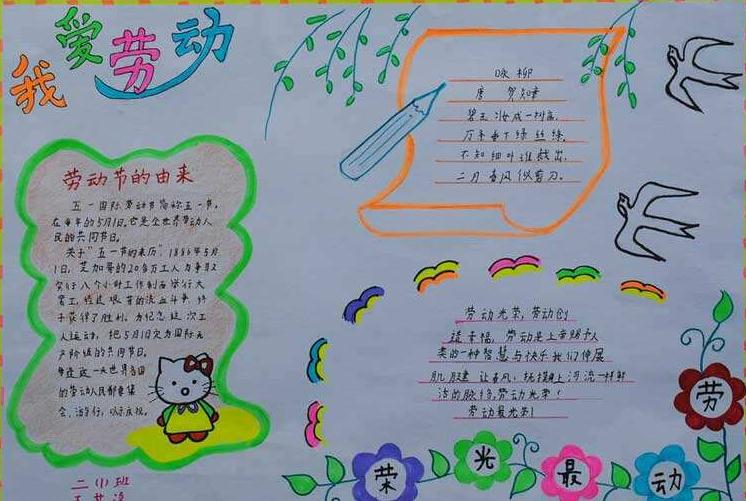 我爱劳动
劳动节的由来
五一国际劳动节简称五一节,
在每年的5月1日。它是全世界劳动人
民的共同节日。
关于“五一节的来历”,1886年5月
1日,芝加哥的20多万工人为争取
实行八个小时工作制而举行大
罢工,经过艰苦的流血斗争,终
于获得了胜利。为纪念这次工
人运动,把5月1日定为国际无
产阶级的共同节日。
每逢这一天世界各国
的劳动人民都要集
会、游行,以示庆祝。
二(1)班
咏柳
唐 贺知章
碧玉妆成一树高,
万条垂下绿丝绦。
不知细叶谁裁出,
二月春风似剪刀。
劳动光荣,劳动创
造幸福,劳动是上帝赐予人
类的一种智慧与快乐我们伸展
肌腱让春风,抚摸上河流一样鲜
活的脉络,劳动光荣!
劳动最光荣!
劳动最光荣